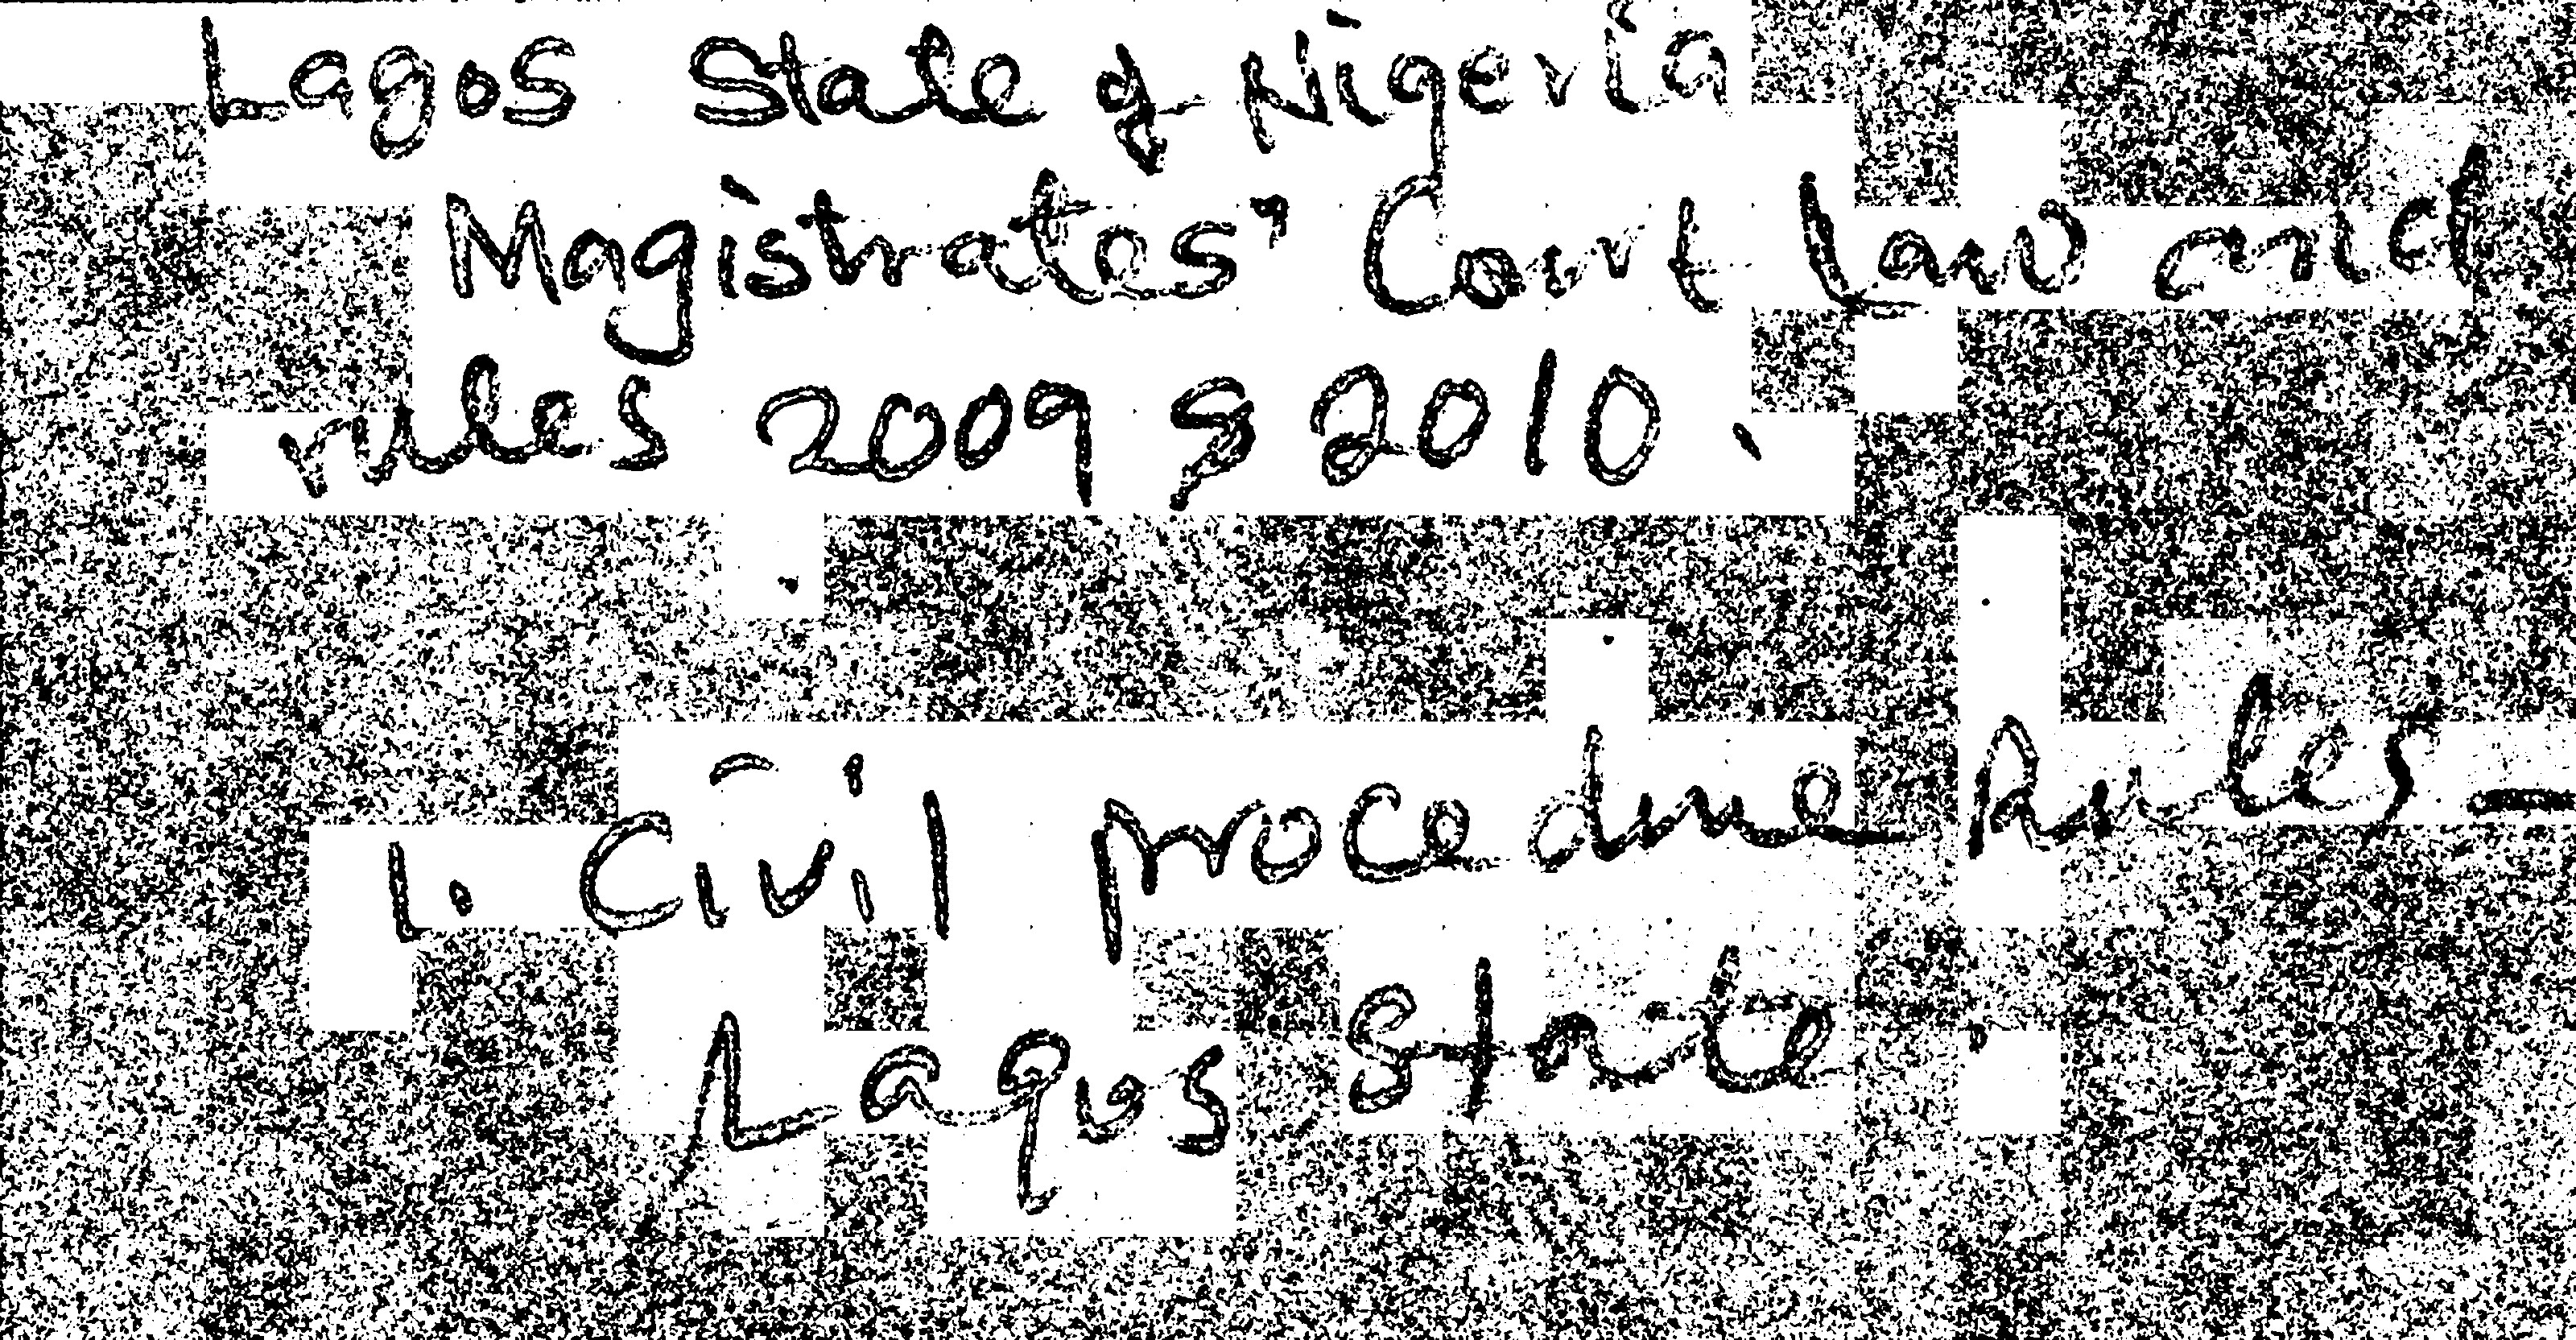 Lagos State of Nigeria
Magistrates' Court Law and
rules 2009 & 2010.
1. Civil procedure Rules -
Lagos State